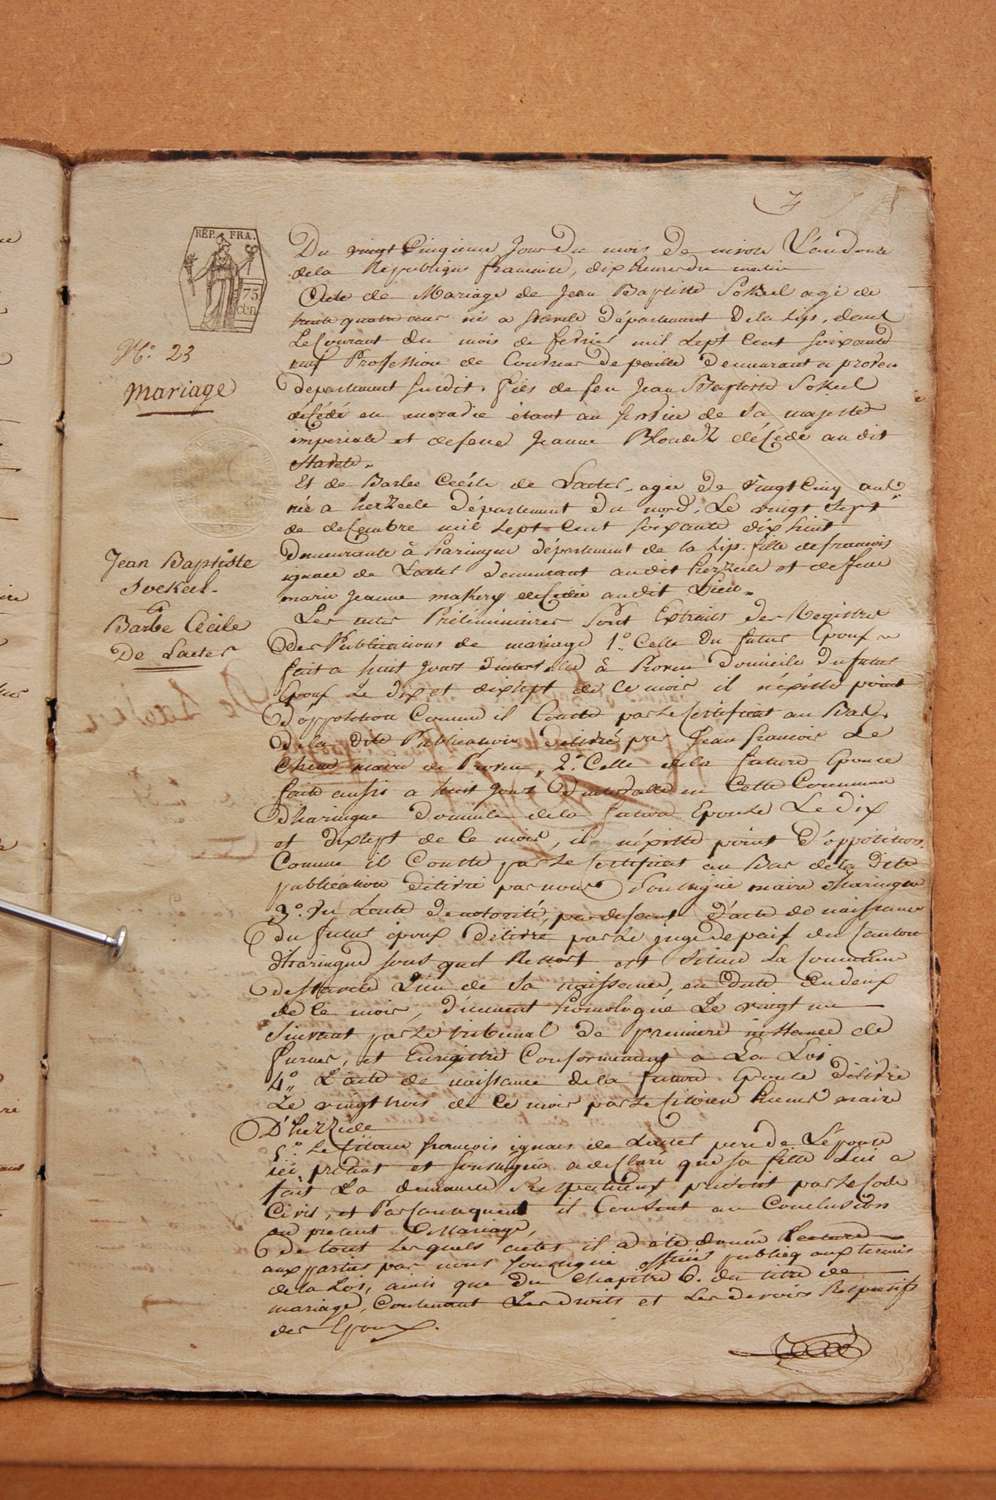 REP. FRA.
75
cen.
N.° 23
Mariage
Jean Baptiste
Sockeel.
&
Barbe Cécile
De Laeter
Du vingt cinquieme jour du mois de nivose L'an douze
de la Republique francaise, dix heures du matin
Acte de Mariage de Jean Baptiste Sokeel agé de
trente quatre ans né a Stavele département de la Lijs, dans
Le Courant du mois de fevrier mil sept Cent soixante
neuf Profession de Couvreur de paille demeurant a proven
departement susdit, fils de feu Jean Baptiste Sokeel
décédé en moravie étant au service de sa majesté
imperiale et defeue Jeanne Blondé décédé au dit
Stavele.
Et de Barbe Cecile de Laeter, agée de vingt Cinq ans
née a herzeele département du nord, Le vingt sept
de decembre mil sept Cent soixante dix huit
demeurante à haringue département de la Lijs. fille defrancois
ignace de Laeter demeurant audit herzeele et de feue
marie jeanne decedée audit Lieu.
Les actes Préliminaires sont Extraits des Registres
des Publications de mariage 1.° Celle du futur Epoux
fait a huit jours d'intervalle à Proven domicile du futur
Epoux Le dix et dixsept de Ce mois il n'éxiste point
d'opposition Comme il Conste par Le Certificat au Bas
de la dite Publication délivré par Jean francois Le
maire de Proven, 2.° Celle de la future Epouse
faite aussi a huit jours d'intervalle en Cette Commune
d'haringue domicile de la future Epouse Le dix
et dixsept de Ce mois, il n'éxiste point d'opposition
Comme il Conste par Le Certificat au Bas de la dite
publication délivré par nous soussigné maire d'haringue
3.° de notorieté, d'acte de naissance
du futur epoux délivré par Le juge de paix du Canton
d'haringue sous quel Ressort est située La Commune
de Stavele Lieu de sa naissance, en date du deux
de Ce mois, dument homologué Le vingt un
suivant par Le tribunal de premiere instance de
furnes, et Enregistré Conformement a La Loi
4.° L'acte de naissance de la future Epouse délivré
Le vingt trois de Ce mois par Le Citoien maire
D'herzeele
5.° Le Citoien francois ignace de Laeter pere de L'épouse
ici présent et soussigné a déclaré que sa fille Lui a
fait La demande Respectueux prescrit par Le Code
Civil, et Par Consequent il Consent au Conclusion
du present Mariage,
de tout Lesquels actes il a été donné Lecture
aux parties par nous soussigné officier publicq aux termes
de la Loi, ainsi que du Chapitre 6. du titre de
mariage, Contenant Les droits et Les devoirs Respectifs
des Epoux.